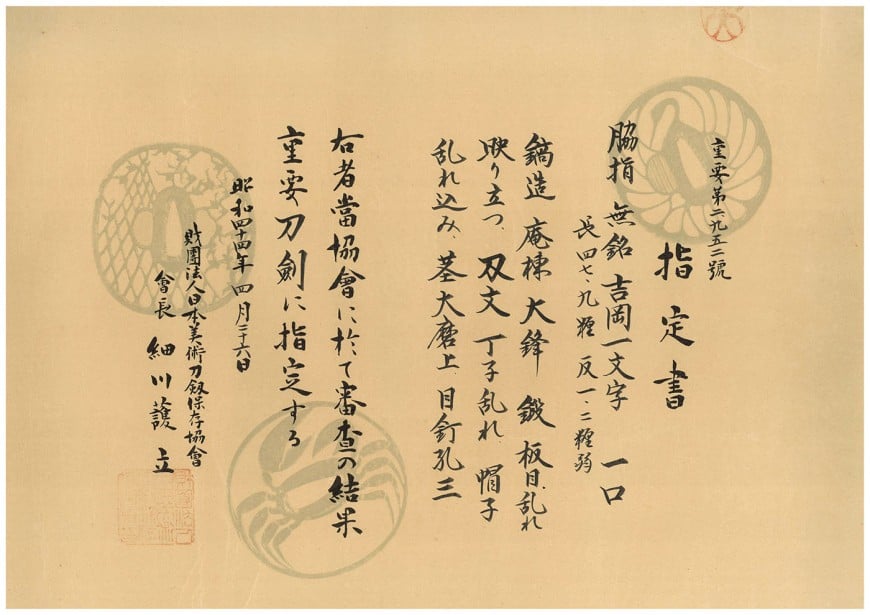 重要第二九五二號
指定書
脇指 無銘 吉岡一文字 一口
長 四七、九糎 反 一、二糎弱
鎬造 庵棟 大鋒 鍛 板目、乱れ
映り立つ、刃文 丁子乱れ 帽子
乱れ込み、茎大磨上 目釘孔三
右者當協會に於て審査の結果
重要刀劍に指定する
昭和四十四年四月二十六日
財團法人日本美術刀剱保存協會
會長 細川護立